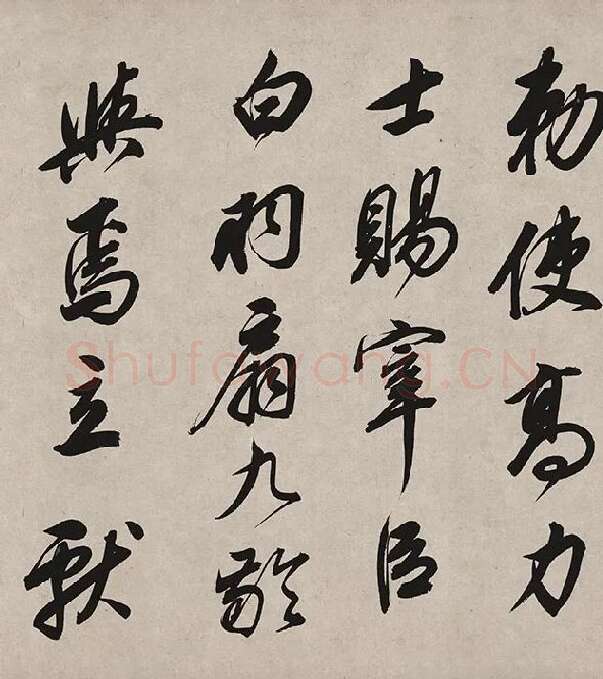 勅使高力
士賜宰臣
白羽扇九齡
與焉立獻
Shufawang.CN